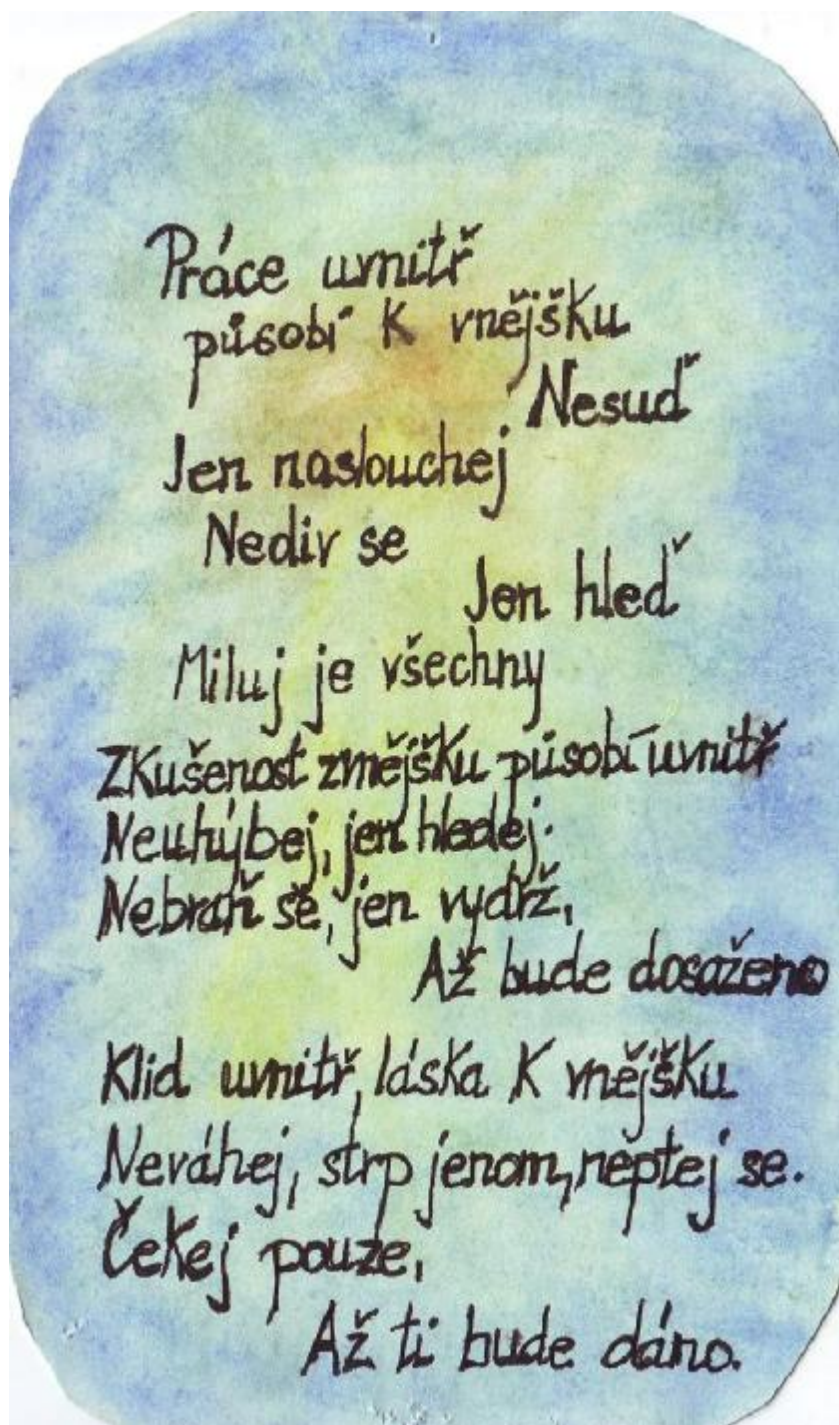 Práce uvnitř
působí k vnějšku
Nesuď
Jen naslouchej
Nediv se
Jen hleď
Miluj je všechny
Zkušenost zvnějšku působí uvnitř
Neuhýbej, jen hledej.
Nebraň se, jen vydrž,
Až bude dosaženo
Klid uvnitř, láska k vnějšku
Neváhej, strp jenom, neptej se.
Čekej pouze,
Až ti bude dáno.